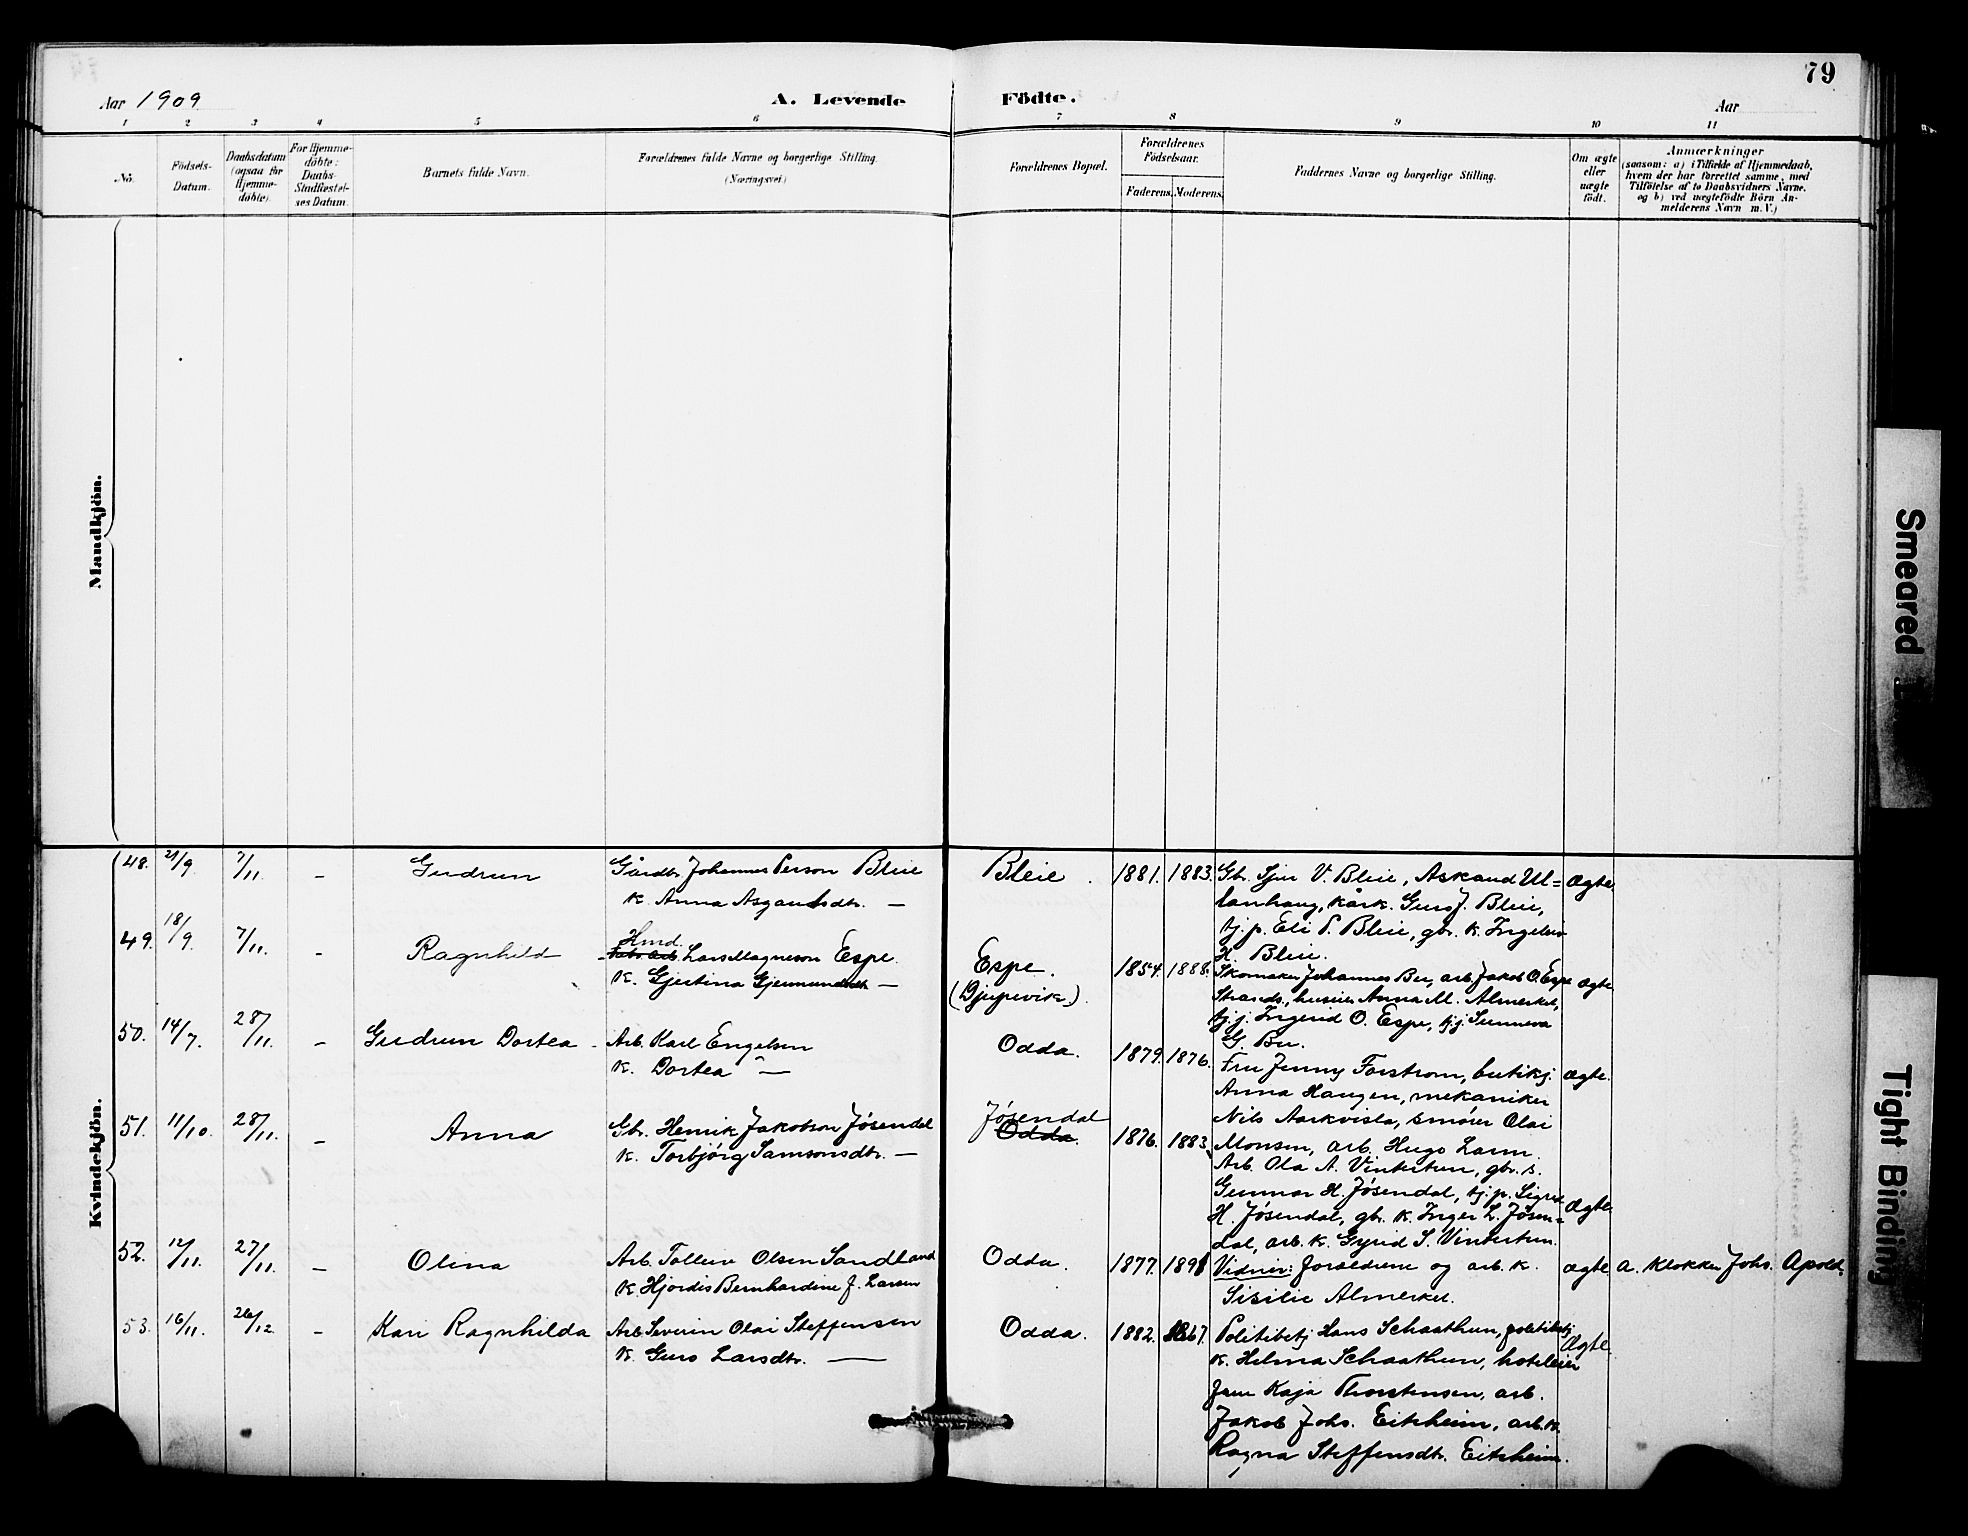 79
Aar 1909
A. Levende Födte.
Aar
1 2 3 4 5 6 7 8 9 10 11
No.
Födsels-
Datum.
Daabsdatum
(ogsaa for
Hjemme-
döbte).
For Hjemme-
döbte:
Daabs-
Stadfæstel-
ses Datum.
Barnets fulde Navn.
Forældrenes fulde Navne og borgerlige Stilling.
(Næringsvei)
Forældrenes Bopæl.
Forældrenes
Födselsaar.
Faderens. Moderens.
Faddernes Navne og borgerlige Stilling.
Om ægte
eller
uægte
födt.
Anmærkninger
(saasom: a) i Tilfælde af Hjemmedaab,
hvem der har forrettet samme, med
Tilföielse af to Daabsvidners Navne.
og b) ved uægtefödte Börn An-
melderens Navn m. V.)
Mandkjön.
Kvindekjön.
48. 21/9. 7/11. – Gudrun
Gårdbr. Johannes Person Bleie
K. Anna Asgautsdtr. —
Bleie. 1881. 1883.
Gbr. Sjur V. Bleie, Askaud Ul=
lanhaug, kårk. Guro J. Bleie,
tj.p. Eli P. Bleie, gbr. k. Ingeleiv
H. Bleie.
Ægte
49. 18/9. 7/11. – Ragnhild
Hmd.
Lars Magneson Espe.
K. Gjertina Gjermundsdtr —
Espe.
(Djupevik).
1854. 1888.
Skomaker Johannes Bu, arb. Jakob O. Espe
Strands., huseier Anna M. Almerket,
tj.j. Ingerid O. Espe, tj.j. Sunneva
G. Bu.
Ægte
50. 14/7. 28/11. – Gudrun Dortea
Arb. Karl Engelsen
K. Dortea –"–
Odda. 1879. 1876.
Fru Jenny Forstrom, butikj.
Anna Haugen, mekaniker
Nils Aarkvisla, smører Olai
Monsen, arb. Hugo Larm.
Ægte.
51. 11/10. 28/11. – Anna
Gbr. Henrik Jakobson Jøsendal
K. Torbjørg Samsonsdtr. —
Jøsendal
Odda.
1876. 1883.
Arb. Ola A. Vintertun, gbr. s.
Gunnar H. Jøsendal, tj.p. Sigrid
H. Jøsendal, gbr. k. Inger L. Jøsen=
dal, arb. k. Gyrid S. Vintertun.
Ægte
52. 12/11. 27/11. – Olina
Arb. Tolleiv Olsen Sandland
K. Hjordis Bernhardine J. Larsen
Odda. 1877. 1891
Vidner: Forældrene og arb. k.
Sisilie Almerket.
Ægte
A. Klokker Johs. Apold.
53. 16/11. 26/12. – Kari Ragnhilda
Arb. Severin Olai Steffensen
K. Guro Larsdtr. —
Odda. 1882.
Politibetj Hans Schaathun, politibetj
k. Helma Schaathun, hoteleier
fru Kaja Thorstensen, arb.
Jakob Johs. Eitrheim, arb.k.
Ragna Steffensdtr. Eitrheim.
Ægte
Smeared
Tight Binding